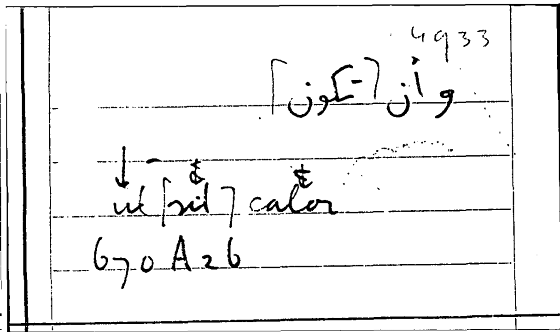 4933
وأن [تكون]
ut [sit] calor
670 A 26